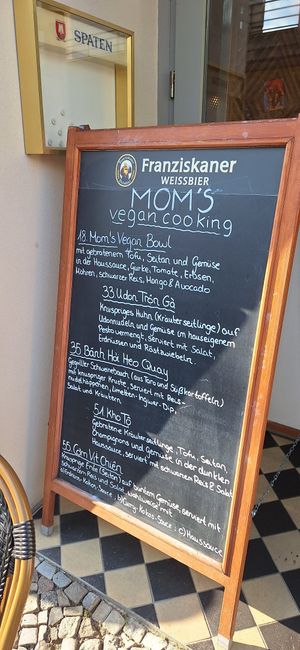 SPATEN
Franziskaner
WEISSBIER
MOM'S
vegan cooking
18 Mom's Vegan Bowl
mit gebratenem Tofu, Seitan und Gemüse
in der Haussauce, Gurke, Tomate, Erbsen,
Möhren, schwarzer Reis, Mango & Avocado
33 Udon Trộn Gà
Knuspriges Huhn (Kräuterseitlinge) auf
Udonnudeln und Gemüse (in hauseigenem
Pesto vermengt, Serviert mit Salat,
Erdnüssen und Röstzwiebeln.
35 Bánh Hỏi Heo Quay
Gegrillter Schweinebauch (aus Taro und Süßkartoffeln)
mit knuspriger Kruste, Serviert mit Reis-
nudelhäppchen, Limetten-Ingwer-Dip,
Salat und Kräutern.
51 Kho Tộ
Gebratene Kräuterseitlinge, Tofu, Seitan,
Champignons und Gemüse in der dunklen
Haussauce, serviert mit schwarzem Reis & Salat
55 Cơm Vịt Chiên
Knusprige Ente auf buntem Gemüse, serviert mit
schwarzem Reis und Salat wahlweise mit
Kokos. Sauce b) Curry-Kokos. Sauce c) Haussauce